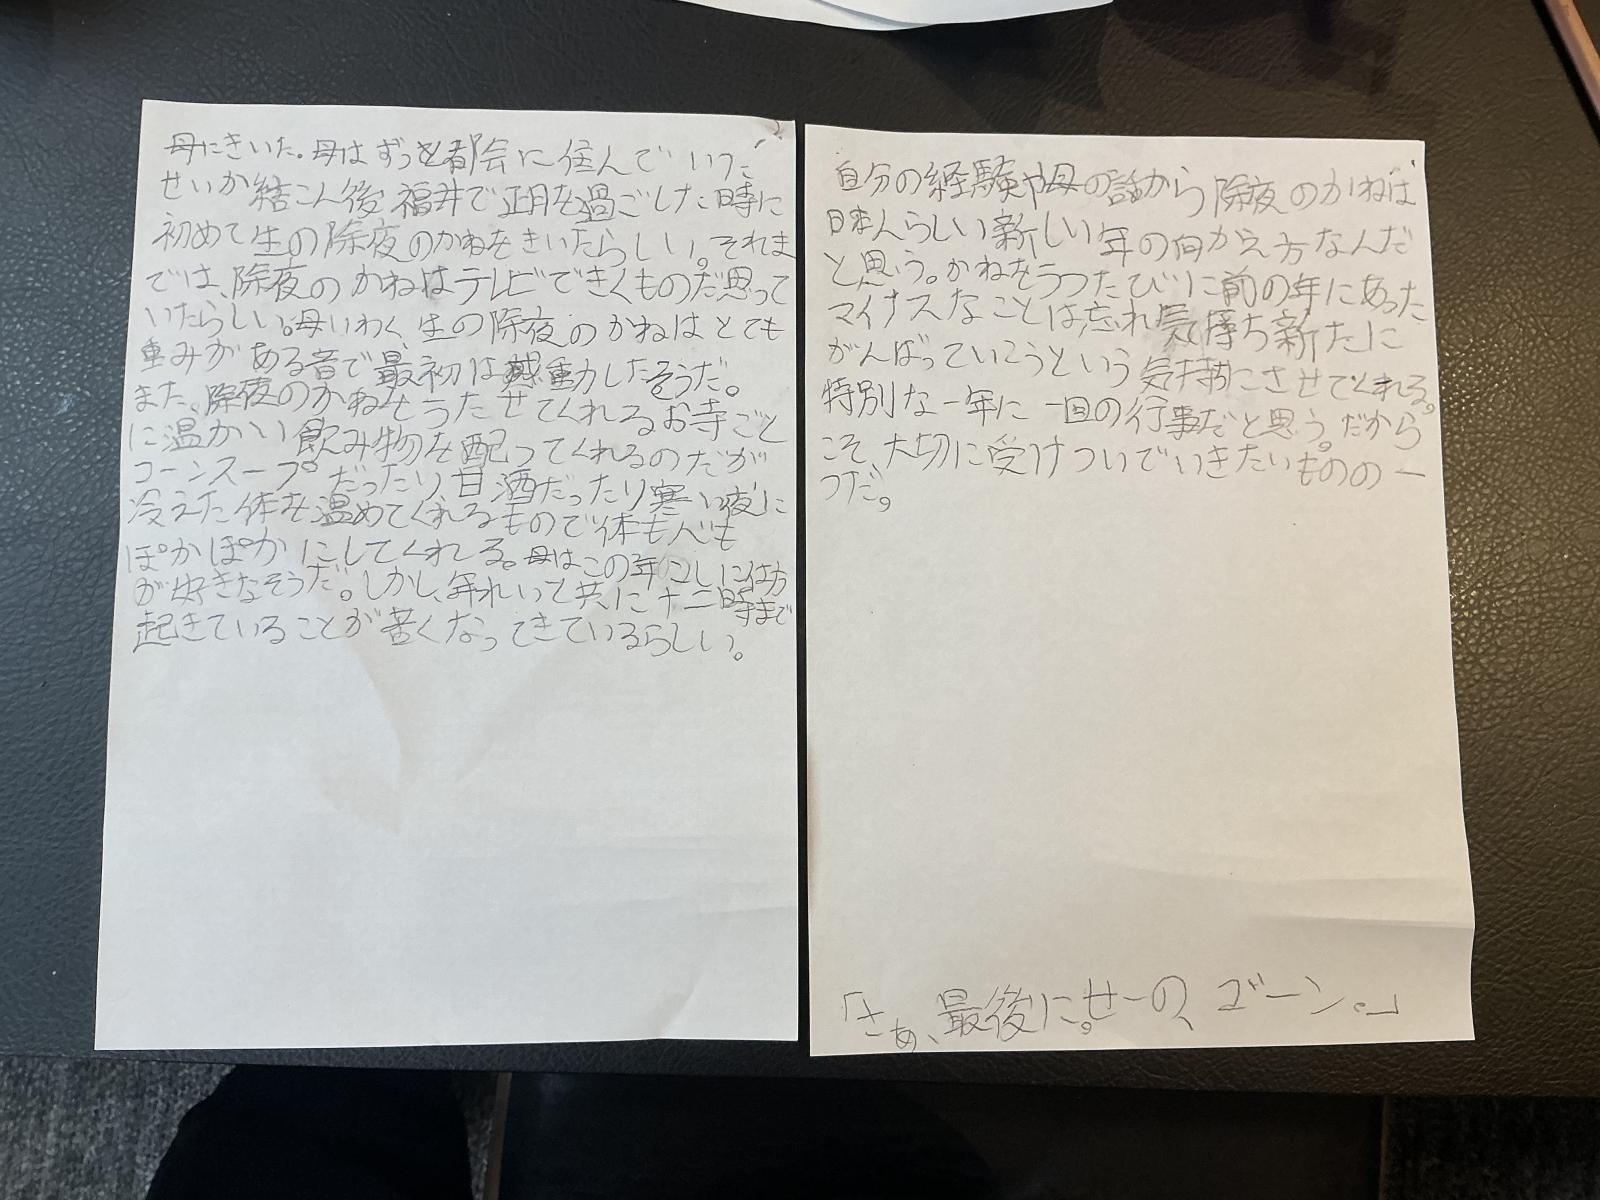 母にきいた。母はずっと都会に住んでいた
せいか結こん後福井で正月を過ごした時に
初めて生の除夜のかねをきいたらしい。それま
では、除夜のかねはテレビできくものだ思って
いたらしい。母いわく、生の除夜のかねはとても
重みがある音で最初は感動したそうだ。
また、除夜のかねをうたせてくれるお寺ごと
に温かい飲み物を配ってくれるのだが
コーンスープだったり甘酒だったり寒い夜に
冷えた体を温めてくれるもので体も心も
ぽかぽかにしてくれる。母はこの年こしに仕方
が好きなそうだ。しかし、年れいと共に十二時まで
起きていることが苦くなってきているらしい。
自分の経験や母の話から除夜のかねは
日本人らしい新しい年の向かえ方なんだ
と思う。かねをうつたびに前の年にあった
マイナスなことは忘れ気持ち新たに
がんばっていこうという気持にさせてくれる。
特別な一年に一回の行事だと思う。だから
こそ大切に受けついでいきたいものの一
つだ。
「さあ、最後に。せーの、ゴーン。」